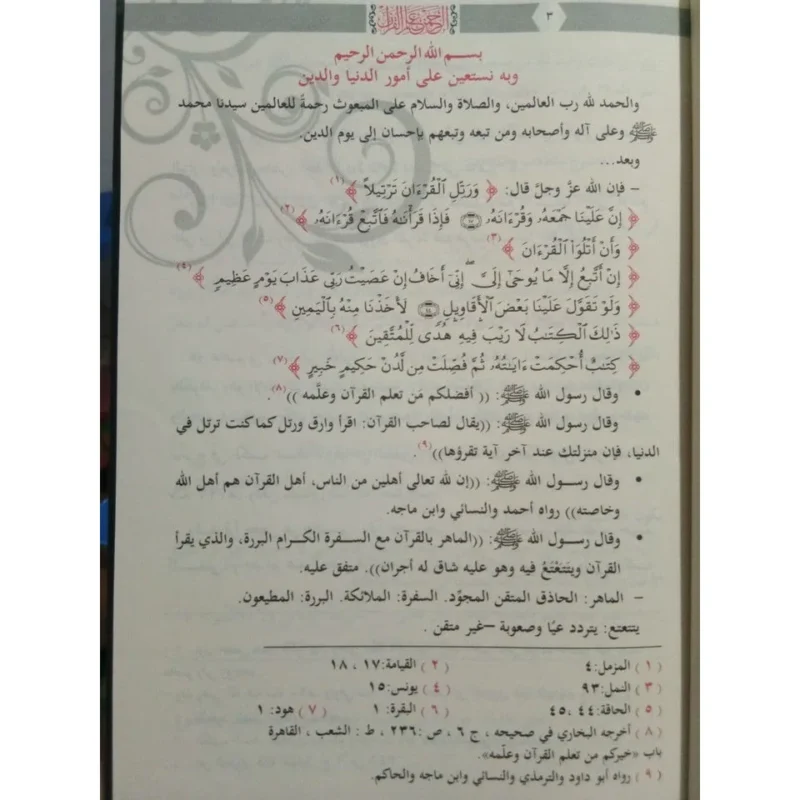 ٣
الرحمن علم القرآن
بسم الله الرحمن الرحيم
وبه نستعين على أمور الدنيا والدين
والحمد لله رب العالمين، والصلاة والسلام على المبعوث رحمةً للعالمين سيدنا محمد
ﷺ وعلى آله وأصحابه ومن تبعه وتبعهم بإحسان إلى يوم الدين.
وبعد...
– فإن الله عزَّ وجلَّ قال: ﴿ وَرَتِّلِ ٱلْقُرْءَانَ تَرْتِيلاً ﴾(١)
﴿ إِنَّ عَلَيْنَا جَمْعَهُۥ وَقُرْءَانَهُۥ ۝١٧ فَإِذَا قَرَأْنَٰهُ فَٱتَّبِعْ قُرْءَانَهُۥ ﴾(٢)
﴿ وَأَنْ أَتْلُوَا۟ ٱلْقُرْءَانَ ﴾(٣)
﴿ إِنْ أَتَّبِعُ إِلَّا مَا يُوحَىٰٓ إِلَىَّ ۖ إِنِّىٓ أَخَافُ إِنْ عَصَيْتُ رَبِّى عَذَابَ يَوْمٍ عَظِيمٍ ﴾(٤)
﴿ وَلَوْ تَقَوَّلَ عَلَيْنَا بَعْضَ ٱلْأَقَاوِيلِ ۝٤٤ لَأَخَذْنَا مِنْهُ بِٱلْيَمِينِ ﴾(٥)
﴿ ذَٰلِكَ ٱلْكِتَٰبُ لَا رَيْبَ فِيهِ هُدًى لِّلْمُتَّقِينَ ﴾(٦)
﴿ كِتَٰبٌ أُحْكِمَتْ ءَايَٰتُهُۥ ثُمَّ فُصِّلَتْ مِن لَّدُنْ حَكِيمٍ خَبِيرٍ ﴾(٧)
• وقال رسول الله ﷺ: (( أفضلكم مَن تعلم القرآن وعلَّمه ))(٨).
وقال رسول الله ﷺ: ((يقال لصاحب القرآن: اقرأ وارق ورتل كما كنت ترتل في
الدنيا، فإن منزلتك عند آخر آية تقرؤها))(٩).
• وقال رسول الله ﷺ: ((إن لله تعالى أهلين من الناس، أهل القرآن هم أهل الله
وخاصته)) رواه أحمد والنسائي وابن ماجه.
• وقال رسول الله ﷺ: ((الماهر بالقرآن مع السفرة الكرام البررة، والذي يقرأ
القرآن ويتَتَعْتَعُ فيه وهو عليه شاق له أجران)). متفق عليه.
– الماهر: الحاذق المتقن المجوِّد. السفرة: الملائكة. البررة: المطيعون.
يتتعتع: يتردد عيًا وصعوبة –غير متقن .
(١) المزمل: ٤ (٢) القيامة: ١٧ ، ١٨
(٣) النمل: ٩٣ (٤) يونس: ١٥
(٥) الحاقة: ٤٤ ، ٤٥ (٦) البقرة: ١ (٧) هود: ١
(٨) أخرجه البخاري في صحيحه ، ج ٦ ، ص: ٢٣٦ ، ط : الشعب ، القاهرة
باب «خيركم من تعلم القرآن وعلَّمه».
(٩) رواه أبو داود والترمذي والنسائي وابن ماجه والحاكم.